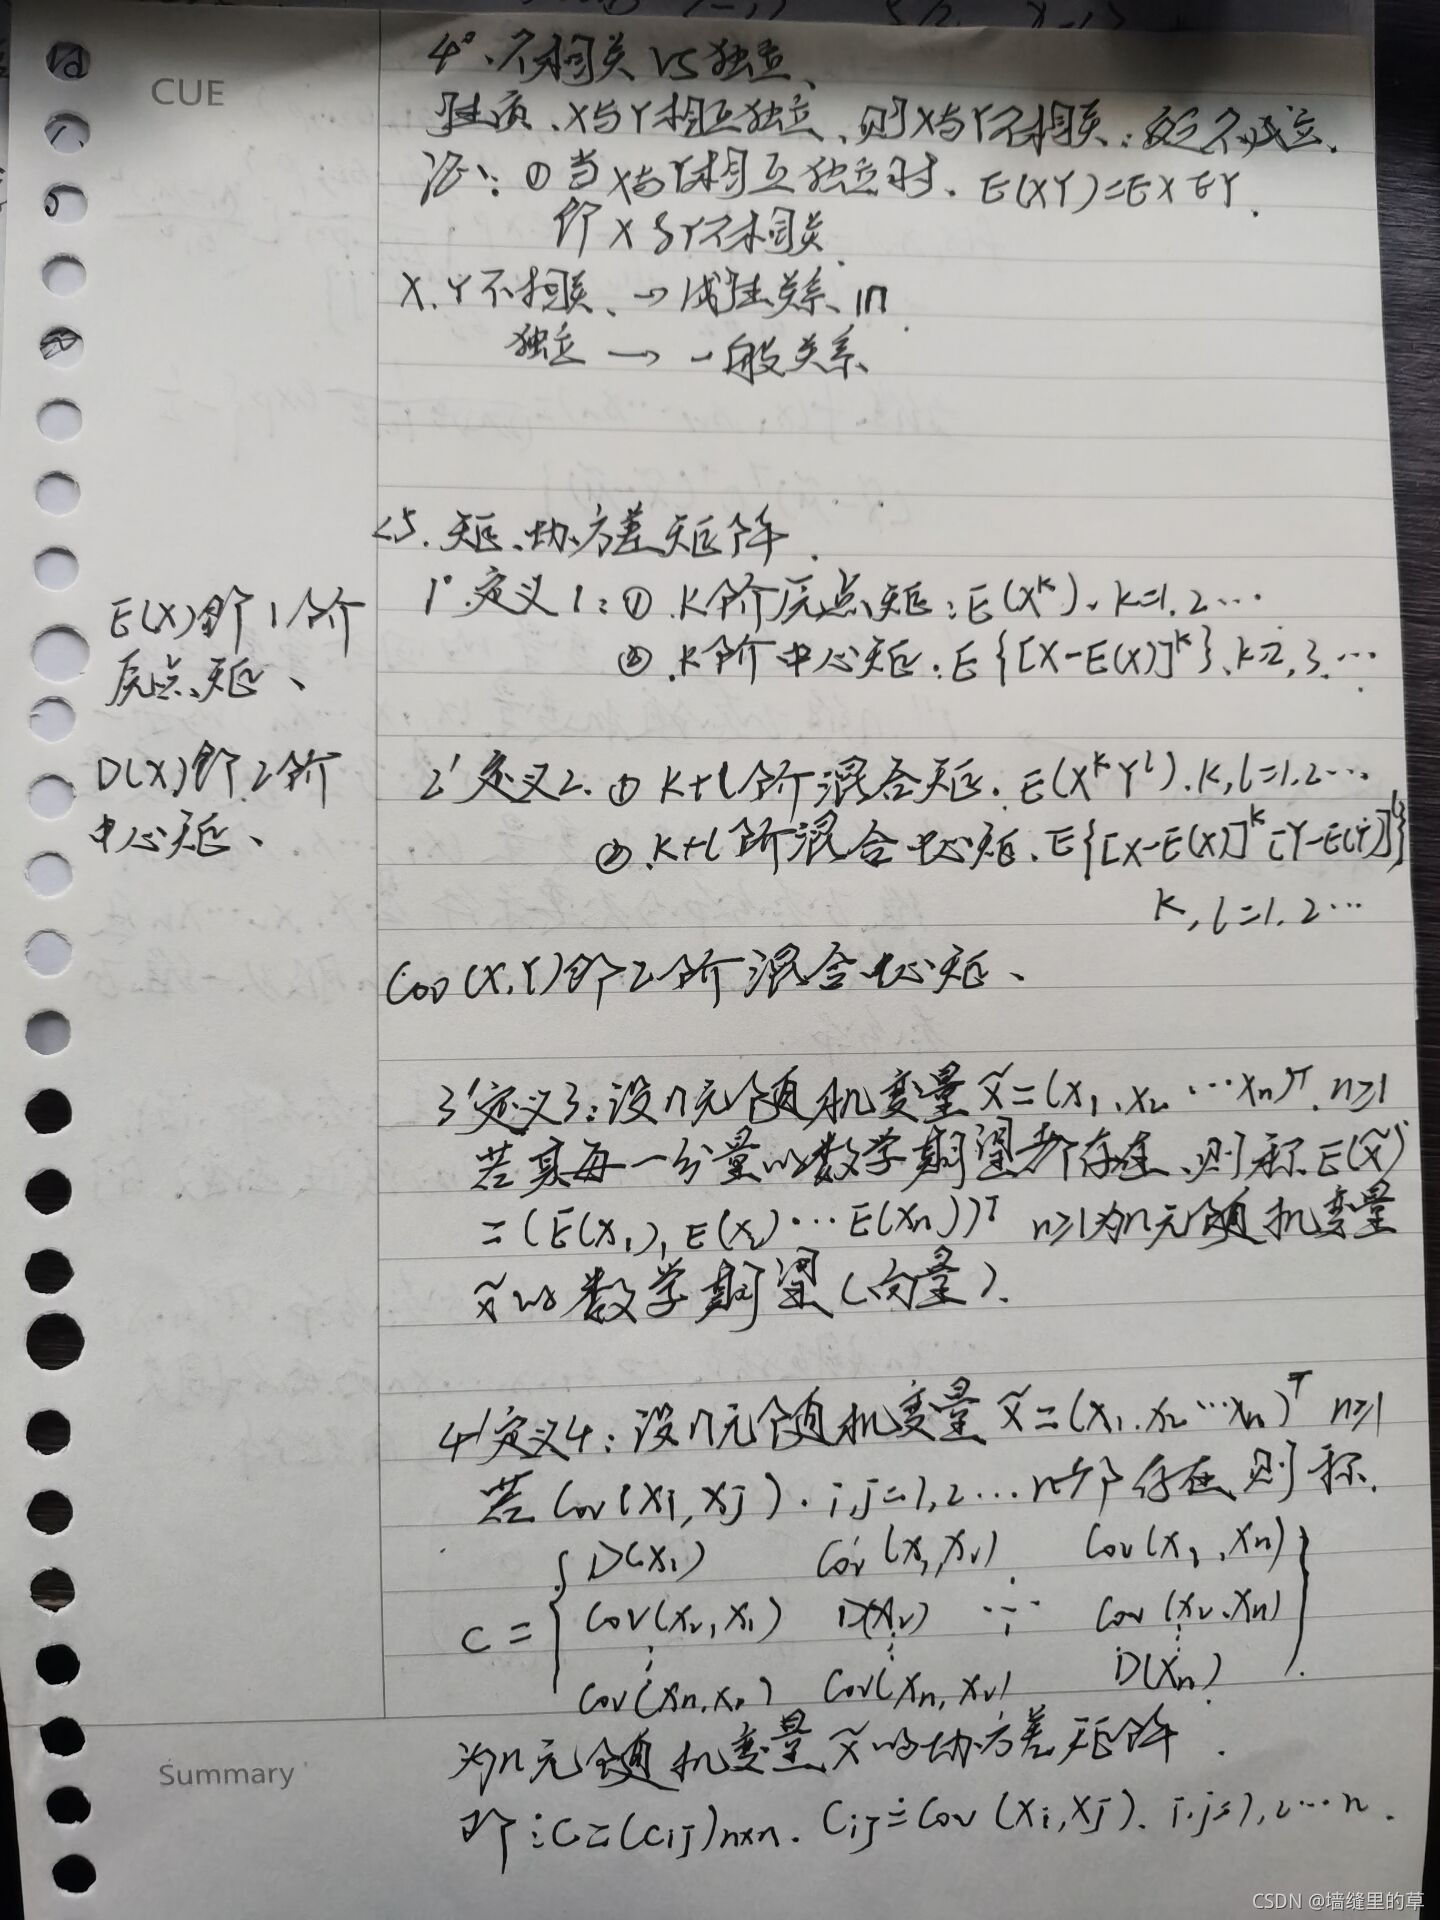 CUE
4°、不相关 VS 独立、
性质、X与Y相互独立、则X与Y不相关；反之不成立.
证: ①当X与Y相互独立时、E(XY)=EXEY.
即X与Y不相关.
X、Y不相关、→线性关系、
独立 → 一般关系、
<5. 矩、协方差矩阵.
1°.定义1: ①.K阶原点矩: E(X^k)、k=1,2…
②.K阶中心矩: E{[X-E(X)]^k}、k=2,3,…
E(X)即1阶
原点矩、
D(X)即2阶
中心矩、
2'定义2、①K+l阶混合矩、E(X^k Y^l).k,l=1,2…
②.K+l阶混合中心矩、E{[X-E(X)]^k[Y-E(Y)]^l}
k,l=1,2…
Cov(X,Y)即2阶混合中心矩、
3'定义3: 设n元随机变量X̃=(X₁,X₂…Xn)ᵀ.n≥1
若其每一分量的数学期望都存在、则称E(X̃)
=(E(X₁),E(X₂)…E(Xn))ᵀ n≥1为n元随机变量
X̃的数学期望(向量).
4'定义4: 设n元随机变量X̃=(X₁,X₂…Xn)ᵀ n≥1
若Cov(Xi,Xj).i,j=1,2…n都存在,则称.
D(X₁) Cov(X₁,X₂) Cov(X₁,Xn)
C= Cov(X₂,X₁) D(X₂) … Cov(X₂,Xn)
Cov(Xn,X₁) Cov(Xn,X₂) D(Xn)
为n元随机变量X̃的协方差矩阵.
即: C=(Cij)n×n. Cij=Cov(Xi,Xj).i,j=1,2…n.
Summary
CSDN @墙缝里的草